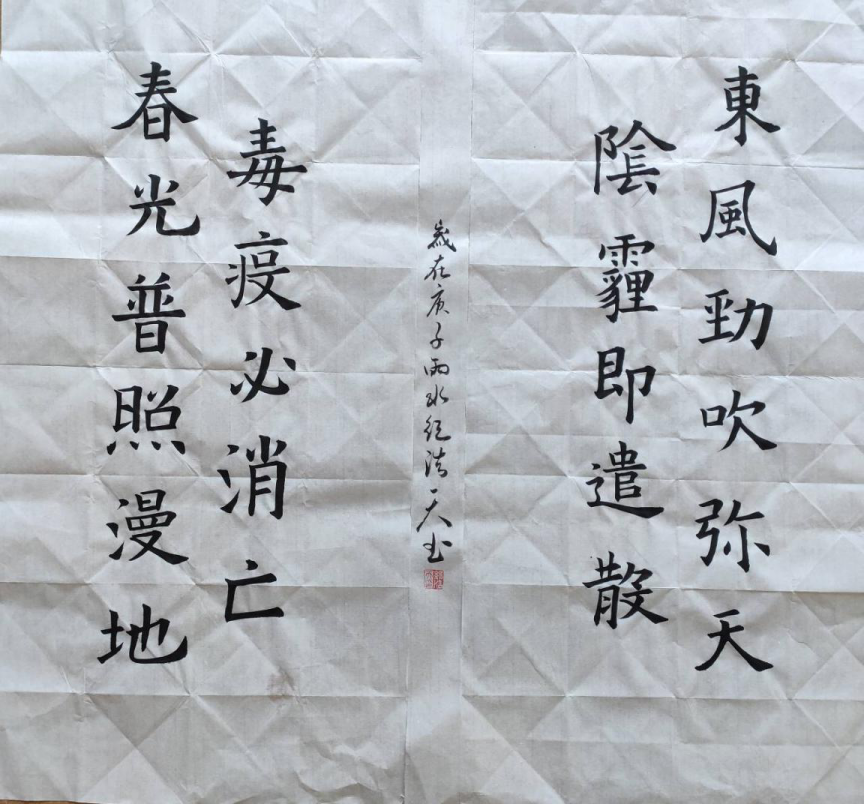 東風勁吹弥天
陰霾即遣散
春光普照漫地
毒疫必消亡
歲在庚子雨水天书